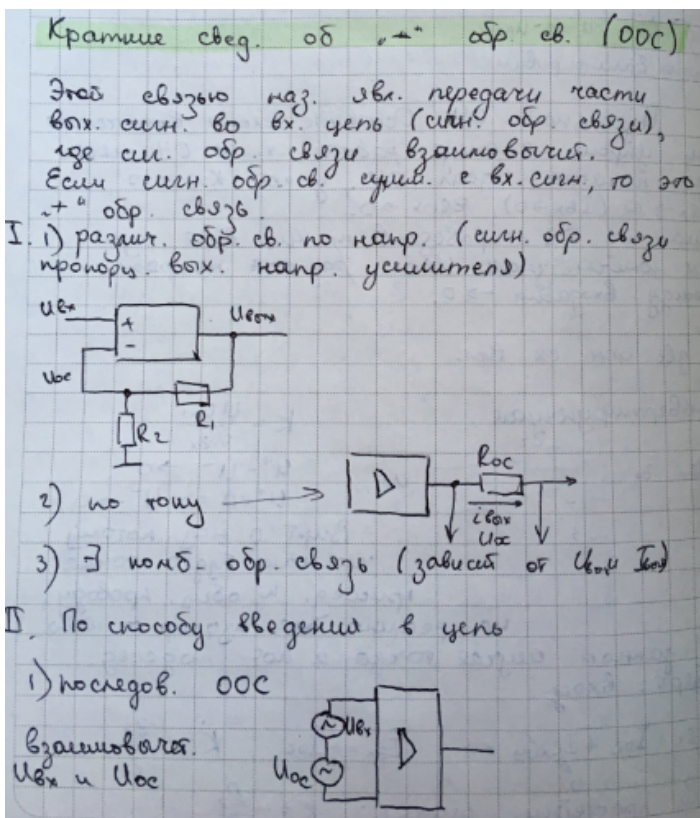 Краткие свед. об „–“ обр. св. (ООС)
Этой связью наз. явл. передачи части
вых. сигн. во вх. цепь (сигн. обр. связи),
где сиг. обр. связи взаимовычит.
Если сигн. обр. св. сумм. с вх. сигн., то это
„+“ обр. связь.
I. 1) различ. обр. св. по напр. (сигн. обр. связи
пропорц. вых. напр. усилителя)
Uвх
+
Uвых
–
Uос
R1
R2
2) по току
Rос
iвых
Uос
3) ∃ комб. обр. связь (зависит от Uвых и Iвых)
II. По способу введения в цепь
1) последов. ООС
взаимовычит.
Uвх и Uос
Uвх
Uос